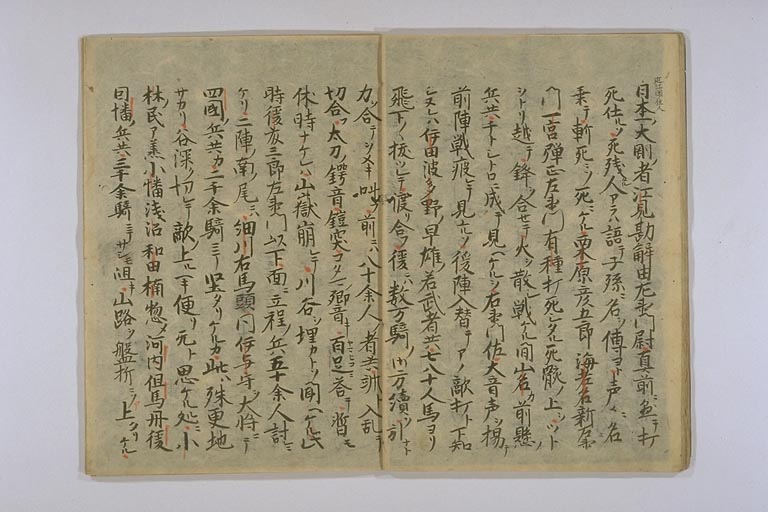 日本一ノ大剛者江見勘解由左衛門尉真前懸ニテ打
死仕ルソ死残人アラハ語テ子孫ニ名ヲ傳ヨト声々ニ名
乗テ斬死ニソ死ニケル栗原彦五郎海老名新左衛
門一宮弾正左衛門有種打死シタル死骸ノ上ヲツト
シトリ越テ鋒ヲ合セテ火ヲ散シ戦ケル間山名カ前懸ノ
兵共シトロニ成テ見ヘケルヲ右衛門佐大音声ヲ揚テ
前陣戦疲テ見ルソ後陣入替テアノ敵打ト下知
シヌレハ伊田波多野早雄ノ若武者共七八十人馬ヨリ
飛下ノ抜ツレテ渡リ合フ後ニハ数万騎ノ御方續ソ引ナト
力ヲ合テヲメキ叫フ前ニハ八十余人ノ者共乱入乱テ
切合フ太刀ノ鍔音鎧突コタマニ響音百千ニ答テ暫モ
休時ナケレハ山嶽崩レテ川谷ヲ埋カトソ聞ヘケル此
時後友三郎左衛門以下面ニ立程ノ兵五十余人討ニ
ケリ二陣ノ南尾ヲハ細川右馬頭同伊与守大将ニテ
四國ノ兵共カ二千余騎ニテ堅タリケルカ此ハ殊更地
サカリ谷深ク切レテ敵ノ上ルヘキ便リ元ト思ケル処ニ小
林民ア丞小幡浅沼和田楠惣シテ河内但馬丹後
因幡ノ兵共三千余騎ニテサシモ沮キ山路ヲ盤折ニソ上タリケル